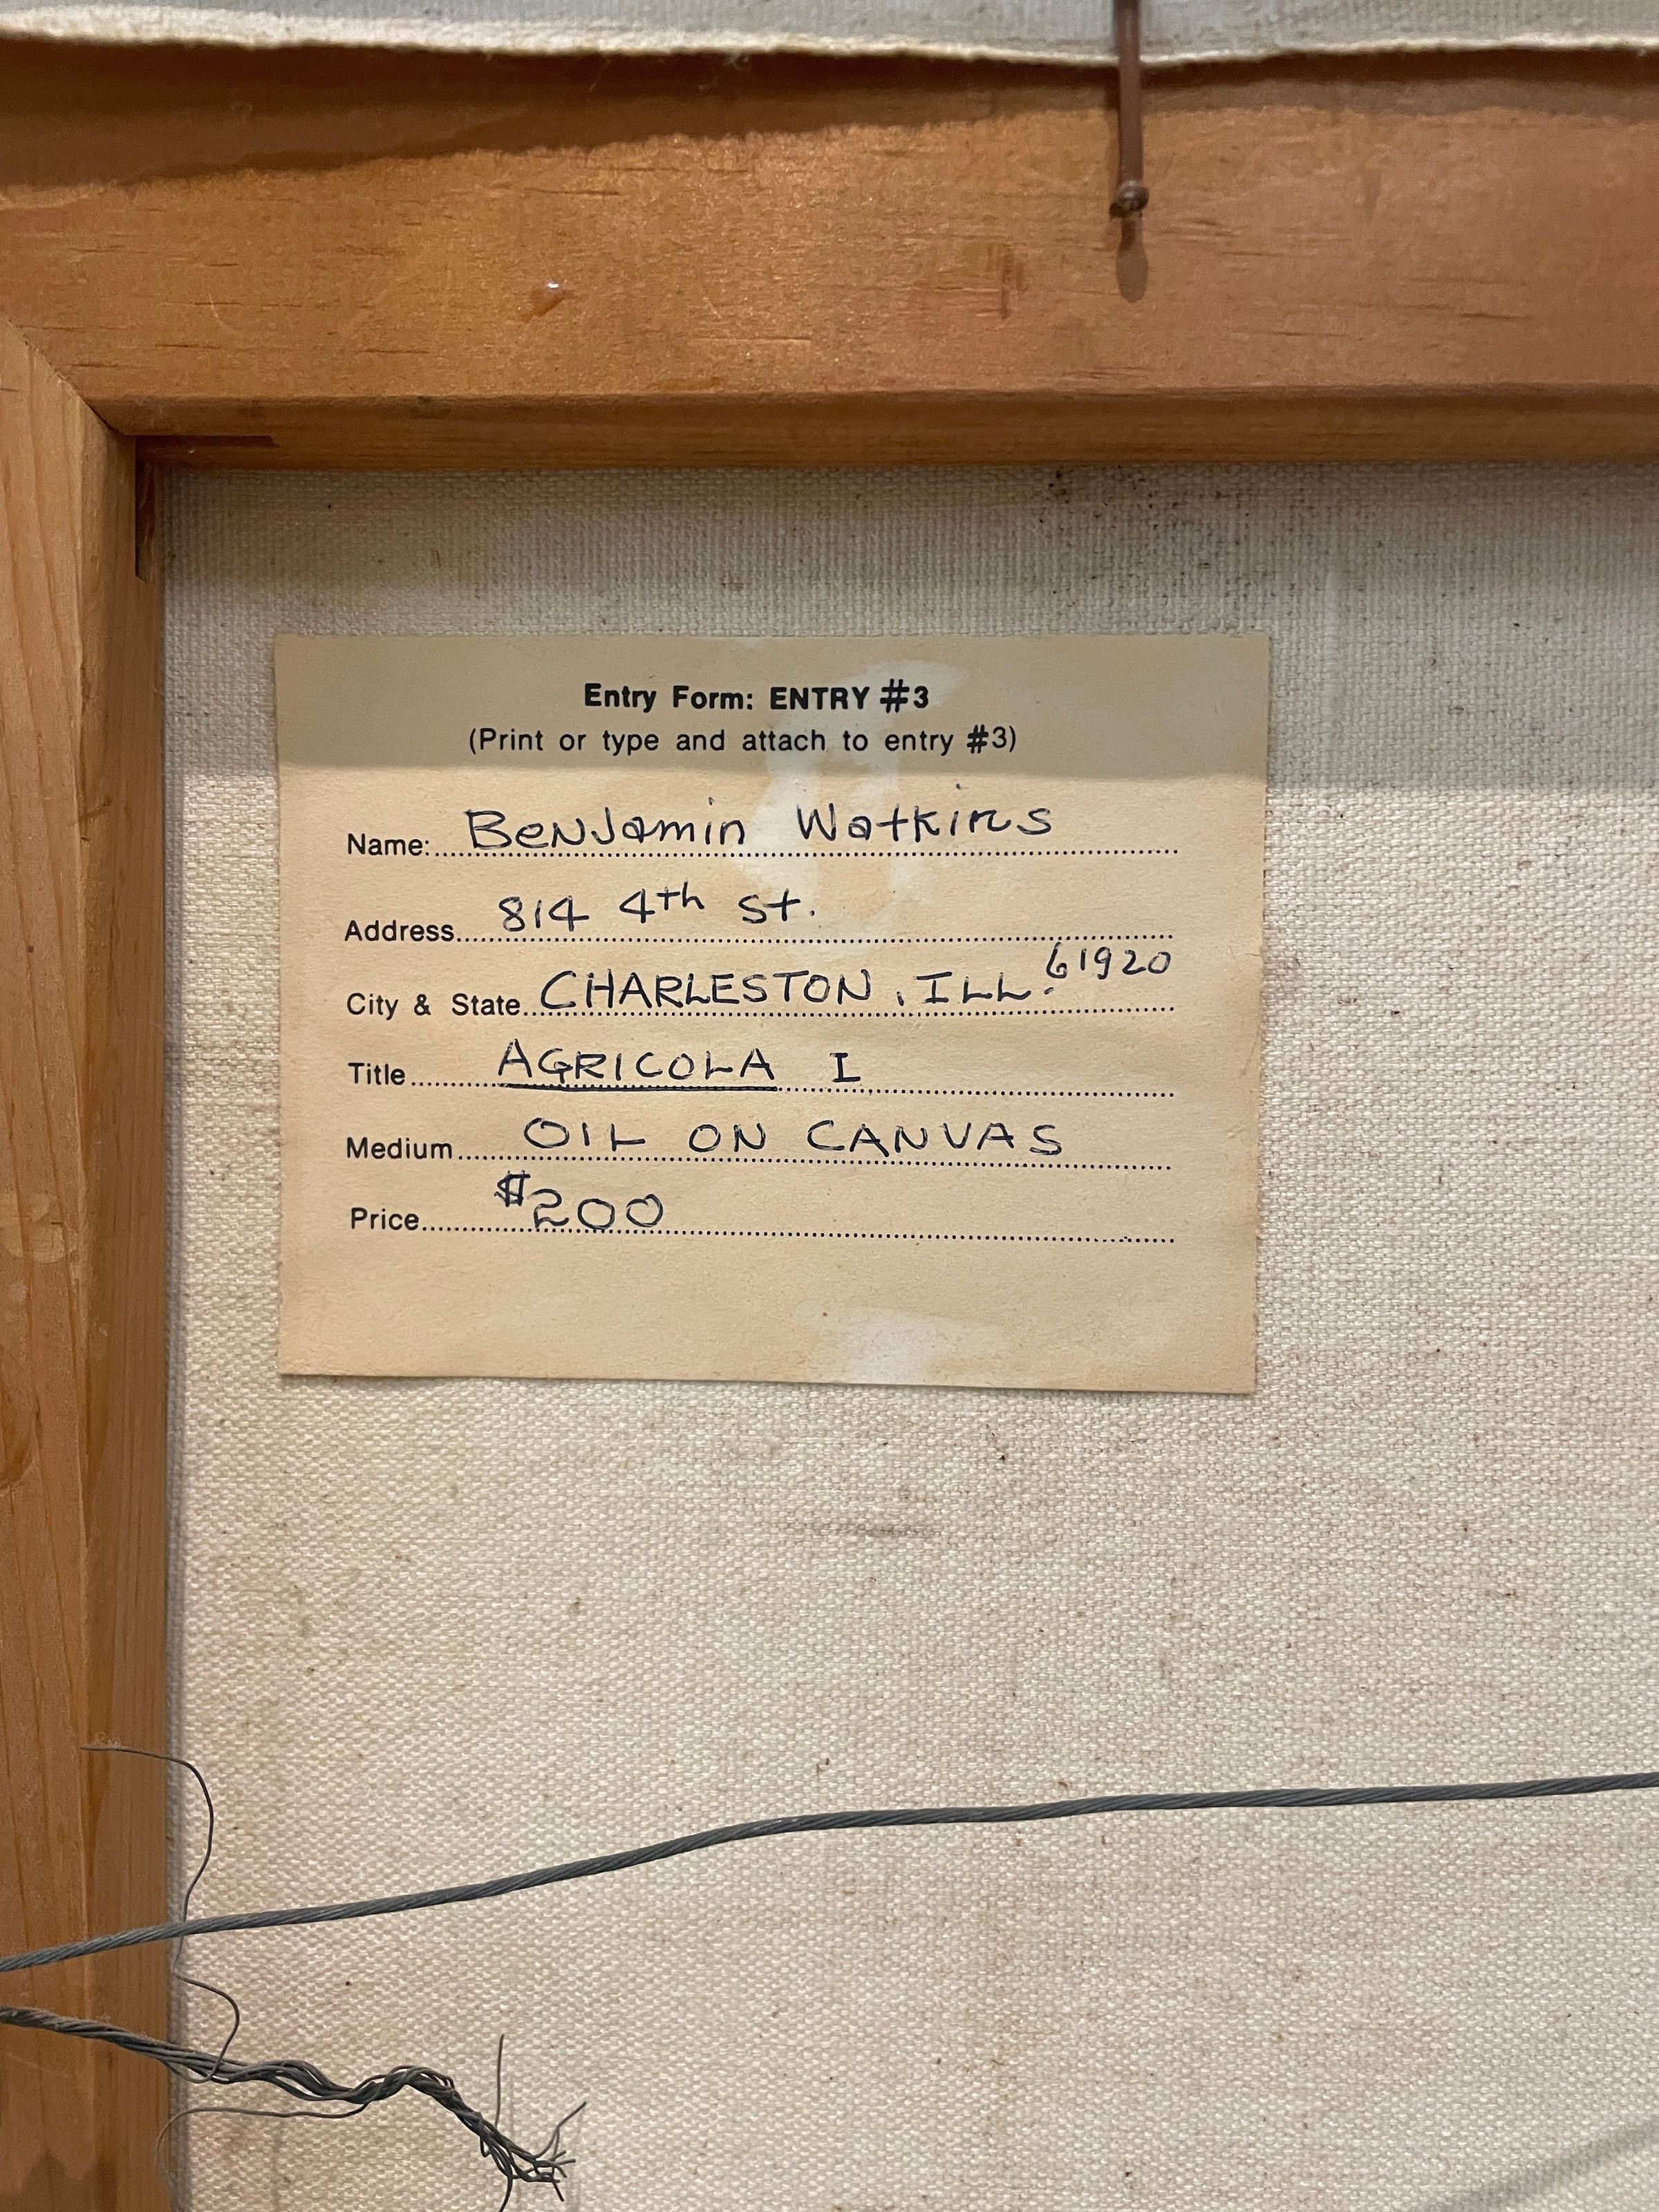 Entry Form: ENTRY #3
(Print or type and attach to entry #3)
Name: Benjamin Watkins
Address 814 4th St.
City & State CHARLESTON, ILL. 61920
Title AGRICOLA I
Medium OIL ON CANVAS
Price $200